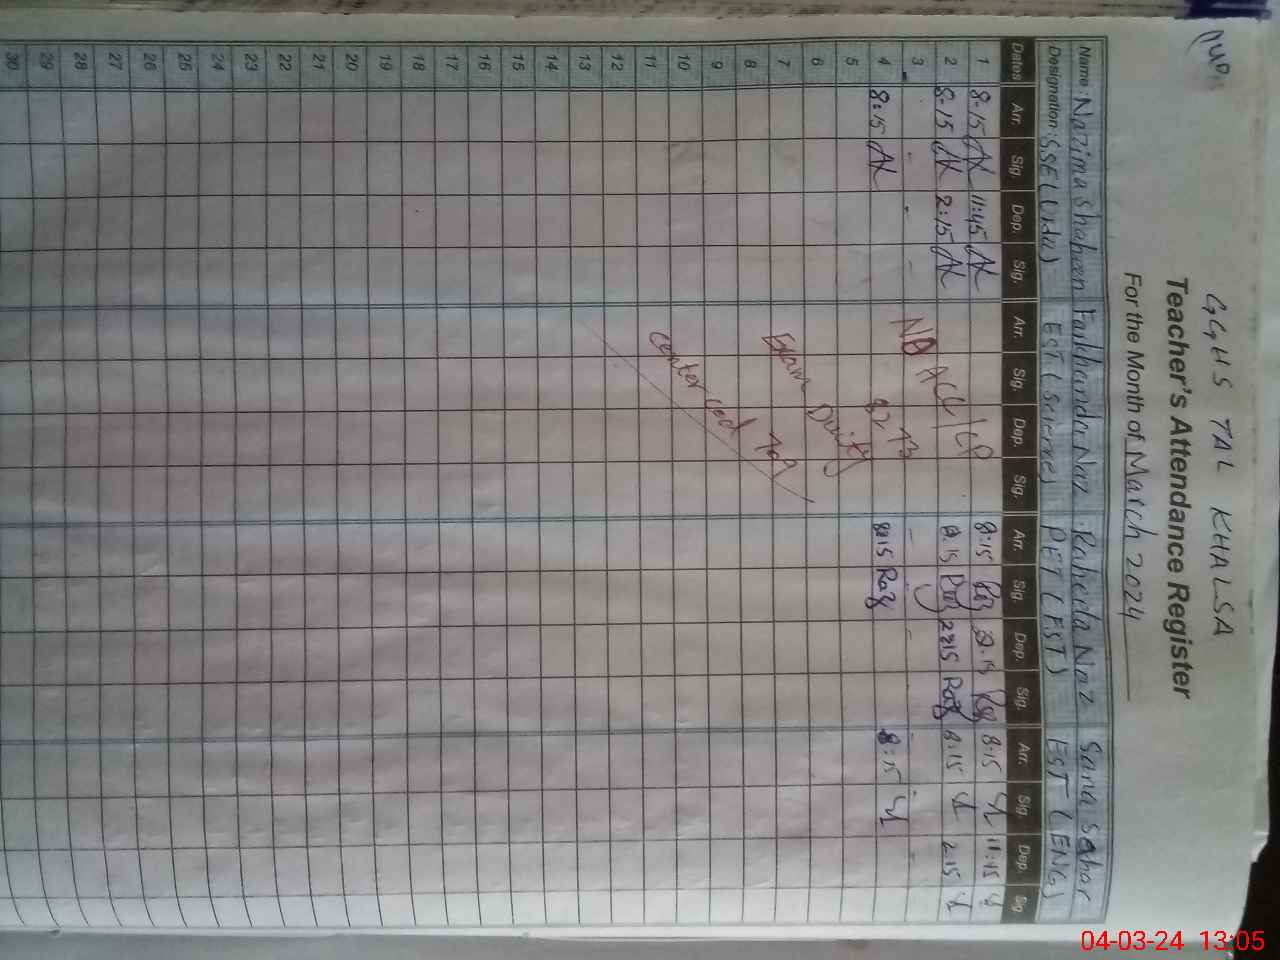 GGHS TAL KHALSA
Teacher's Attendance Register
For the Month of March 2024
Name: Nazima Shaheen Farkhanda Naz Raheela Naz Sana Sahar
Designation: SSE(Urdu) EST(Science) PET(EST) EST(ENG)
Dates Arr. Sig. Dep. Sig. Arr. Sig. Dep. Sig. Arr. Sig. Dep. Sig. Arr. Sig. Dep. Sig
1 8-15 11:45 8:15 2.15 8:15 11:15
2 8-15 2:15 8.15 2:15 8:15 2.15
3
4 8:15 8:15 8:15
5
6
7
8
9
10
11
12
13
14
15
16
17
18
19
20
21
22
23
24
25
26
27
28
29
30
Exam Duity
04-03-24 13:05